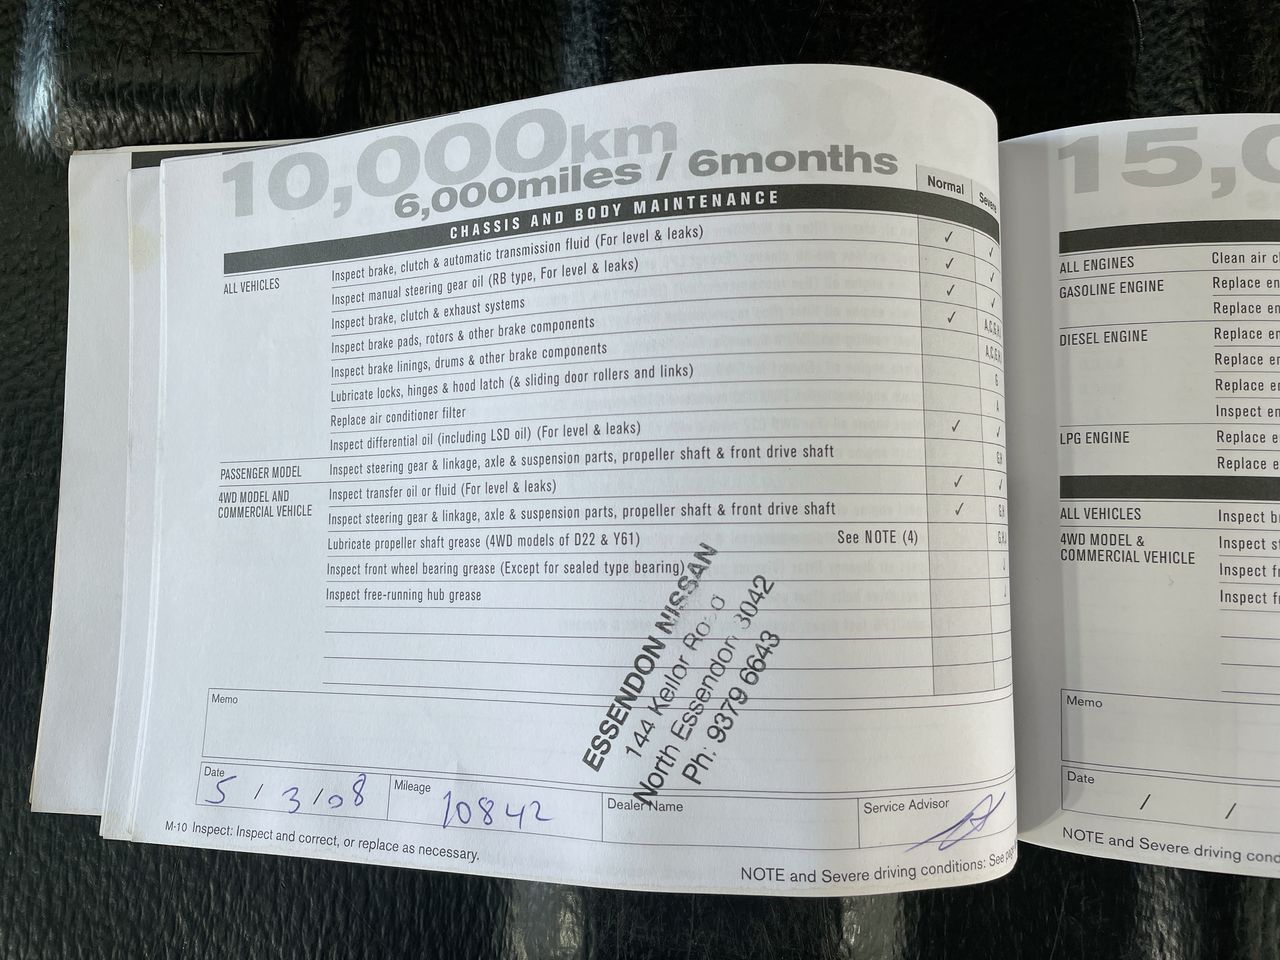 10,000km
6,000miles / 6months
Normal
Severe
CHASSIS AND BODY MAINTENANCE
ALL VEHICLES
Inspect brake, clutch & automatic transmission fluid (For level & leaks) ✓ ✓
Inspect manual steering gear oil (RB type, For level & leaks) ✓ ✓
Inspect brake, clutch & exhaust systems ✓ ✓
Inspect brake pads, rotors & other brake components ✓ A,C,G,H
Inspect brake linings, drums & other brake components A,C,G,H
Lubricate locks, hinges & hood latch (& sliding door rollers and links) G
Replace air conditioner filter A
Inspect differential oil (including LSD oil) (For level & leaks) ✓ ✓
PASSENGER MODEL
Inspect steering gear & linkage, axle & suspension parts, propeller shaft & front drive shaft G,H
4WD MODEL AND
COMMERCIAL VEHICLE
Inspect transfer oil or fluid (For level & leaks) ✓ ✓
Inspect steering gear & linkage, axle & suspension parts, propeller shaft & front drive shaft ✓ G,H
Lubricate propeller shaft grease (4WD models of D22 & Y61) See NOTE (4)
Inspect front wheel bearing grease (Except for sealed type bearing)
Inspect free-running hub grease
ESSENDON NISSAN
144 Keilor Road
North Essendon 3042
Ph: 9379 6643
Memo
Date
5 / 3 / 08
Mileage
10842
Dealer Name
Service Advisor
M-10 Inspect: Inspect and correct, or replace as necessary.
NOTE and Severe driving conditions: See
15,0
ALL ENGINES
Clean air cl
GASOLINE ENGINE
Replace en
Replace en
DIESEL ENGINE
Replace en
Replace en
Replace en
Inspect en
LPG ENGINE
Replace en
Replace e
ALL VEHICLES
Inspect b
4WD MODEL &
COMMERCIAL VEHICLE
Inspect st
Inspect fr
Inspect fr
Memo
Date
/ /
NOTE and Severe driving cond